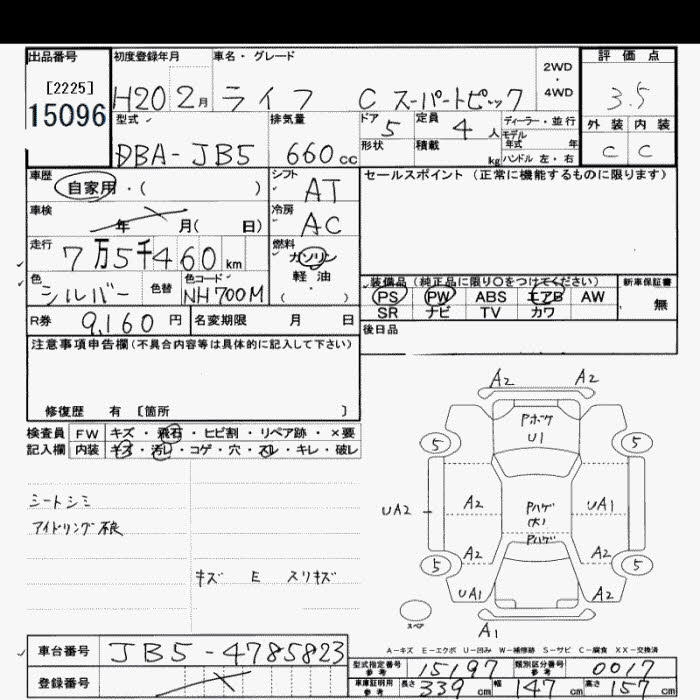 出品番号 初度登録年月 車名・グレード 2WD・4WD 評価点
[2225]
15096 H20 2月 ライフ C スーパートピック 3.5
型式 排気量 ドア 5 定員 4人 ディーラー・並行 外装 内装
モデル年式 年
DBA-JB5 660cc 形状 積載 kg ハンドル 左・右 C C
車歴 自家用・( ) シフト AT セールスポイント(正常に機能するものに限ります)
車検 年 月( 日) 冷房 AC
走行 7万5千460km 燃料 ガソリン
軽油
・
( )
色 シルバー 色替 色コード NH700M 装備品(純正品に限り○をつけてください) 新車保証書
PS PW ABS エアB AW 無
SR ナビ TV カワ
R券 9,160円 名変期限 月 日 後日品
注意事項申告欄(不具合内容等は具体的に記入して下さい)
修復歴 有 〔箇所 〕
検査員 FW キズ・飛石・ヒビ割・リペア跡・×要
記入欄 内装 キズ・汚レ・コゲ・穴・スレ・キレ・破レ
シートシミ
アイドリング不良
キズ E スリキズ
A2 A2
Pボケ
U1
5 5
UA2 A2 Pハゲ UA1
(大)
Pハゲ
A2 A2
5 5
UA1 A2
スペア
A1
A-キズ E-エクボ U-凹み W-補修跡 S-サビ C-腐食 XX-交換済
車台番号 JB5-4785823
型式指定番号 参考 15197 類別区分番号 参考 0017
登録番号
車庫証明用 参考 長さ 339cm 幅 147cm 高さ 157cm